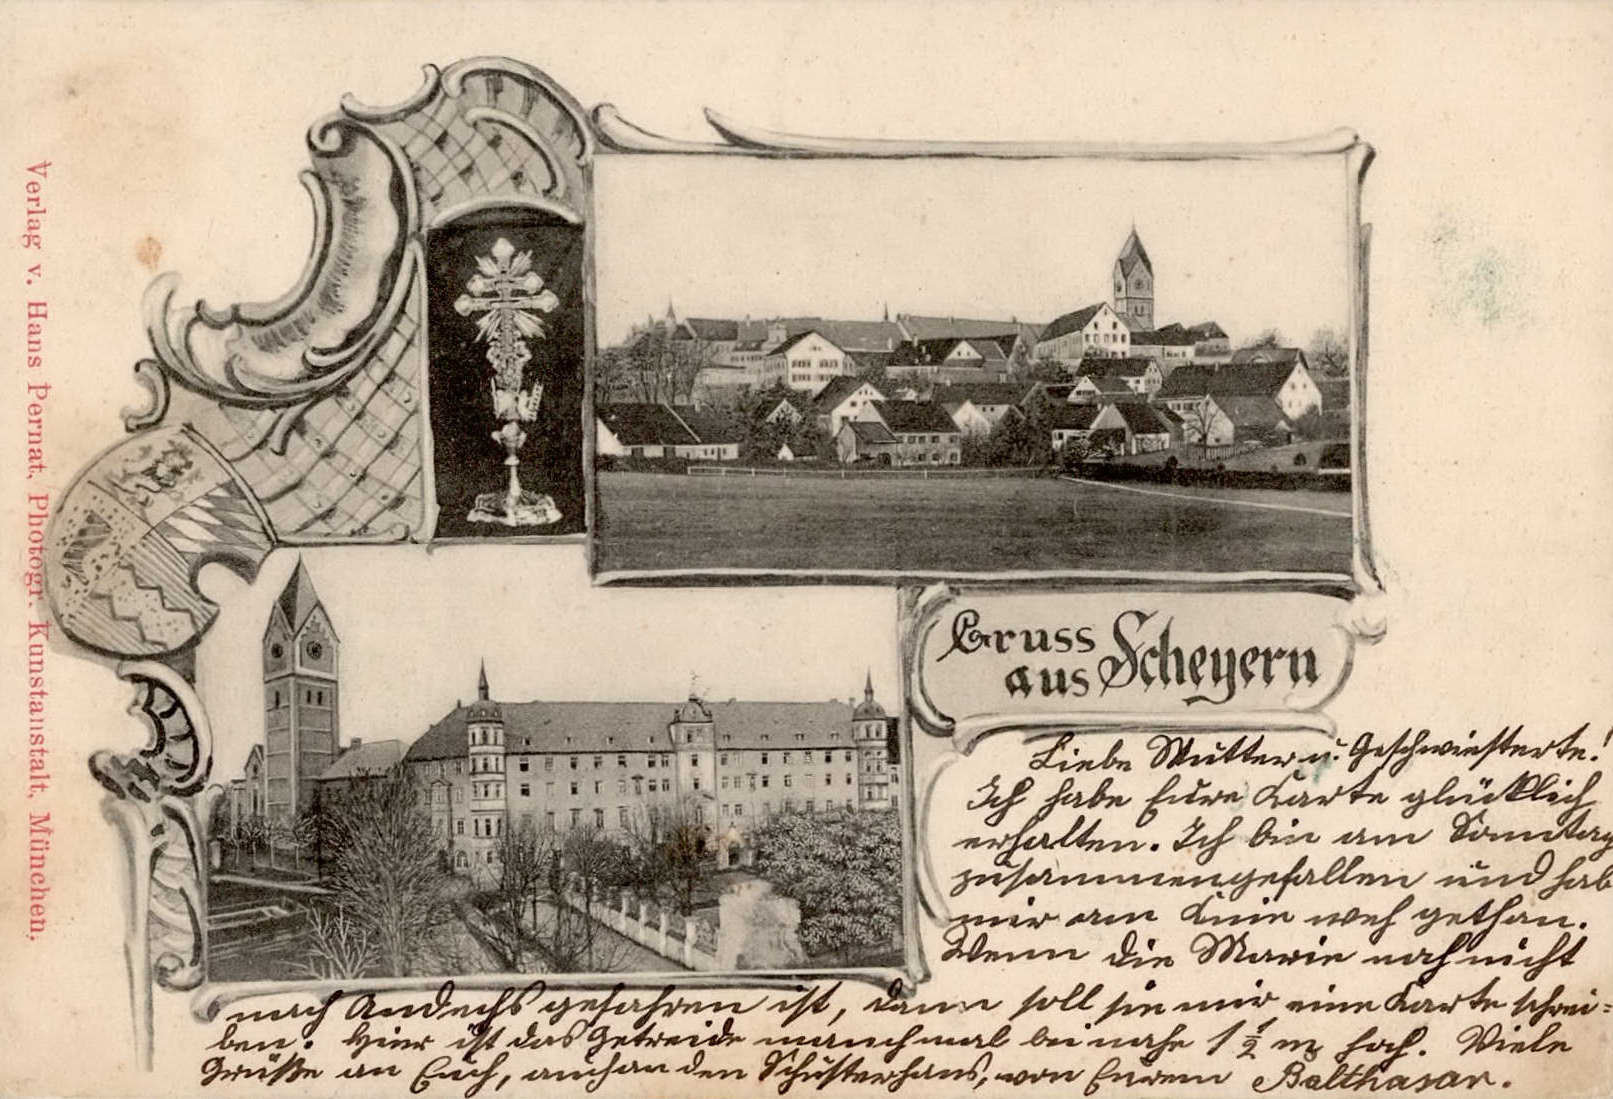 Verlag v. Hans Pernat, Photogr. Kunstanstalt, München,
Gruss
aus Scheyern
Liebe Mutter u. Geschwisterte!
Ich habe Eure Karte glücklich
erhalten. Ich bin am Sonntag
zusammengefallen und hab
mir am Knie weh gethan.
Wenn die Marie noch nicht
nach Andechs gefahren ist, dann soll sie mir eine Karte schrei=
ben. Hier ist das Getreide manchmal bei nahe 1 1/2 m hoch. Viele
Grüße an Euch, auch an den Schusterhans, von Eurem Balthasar.